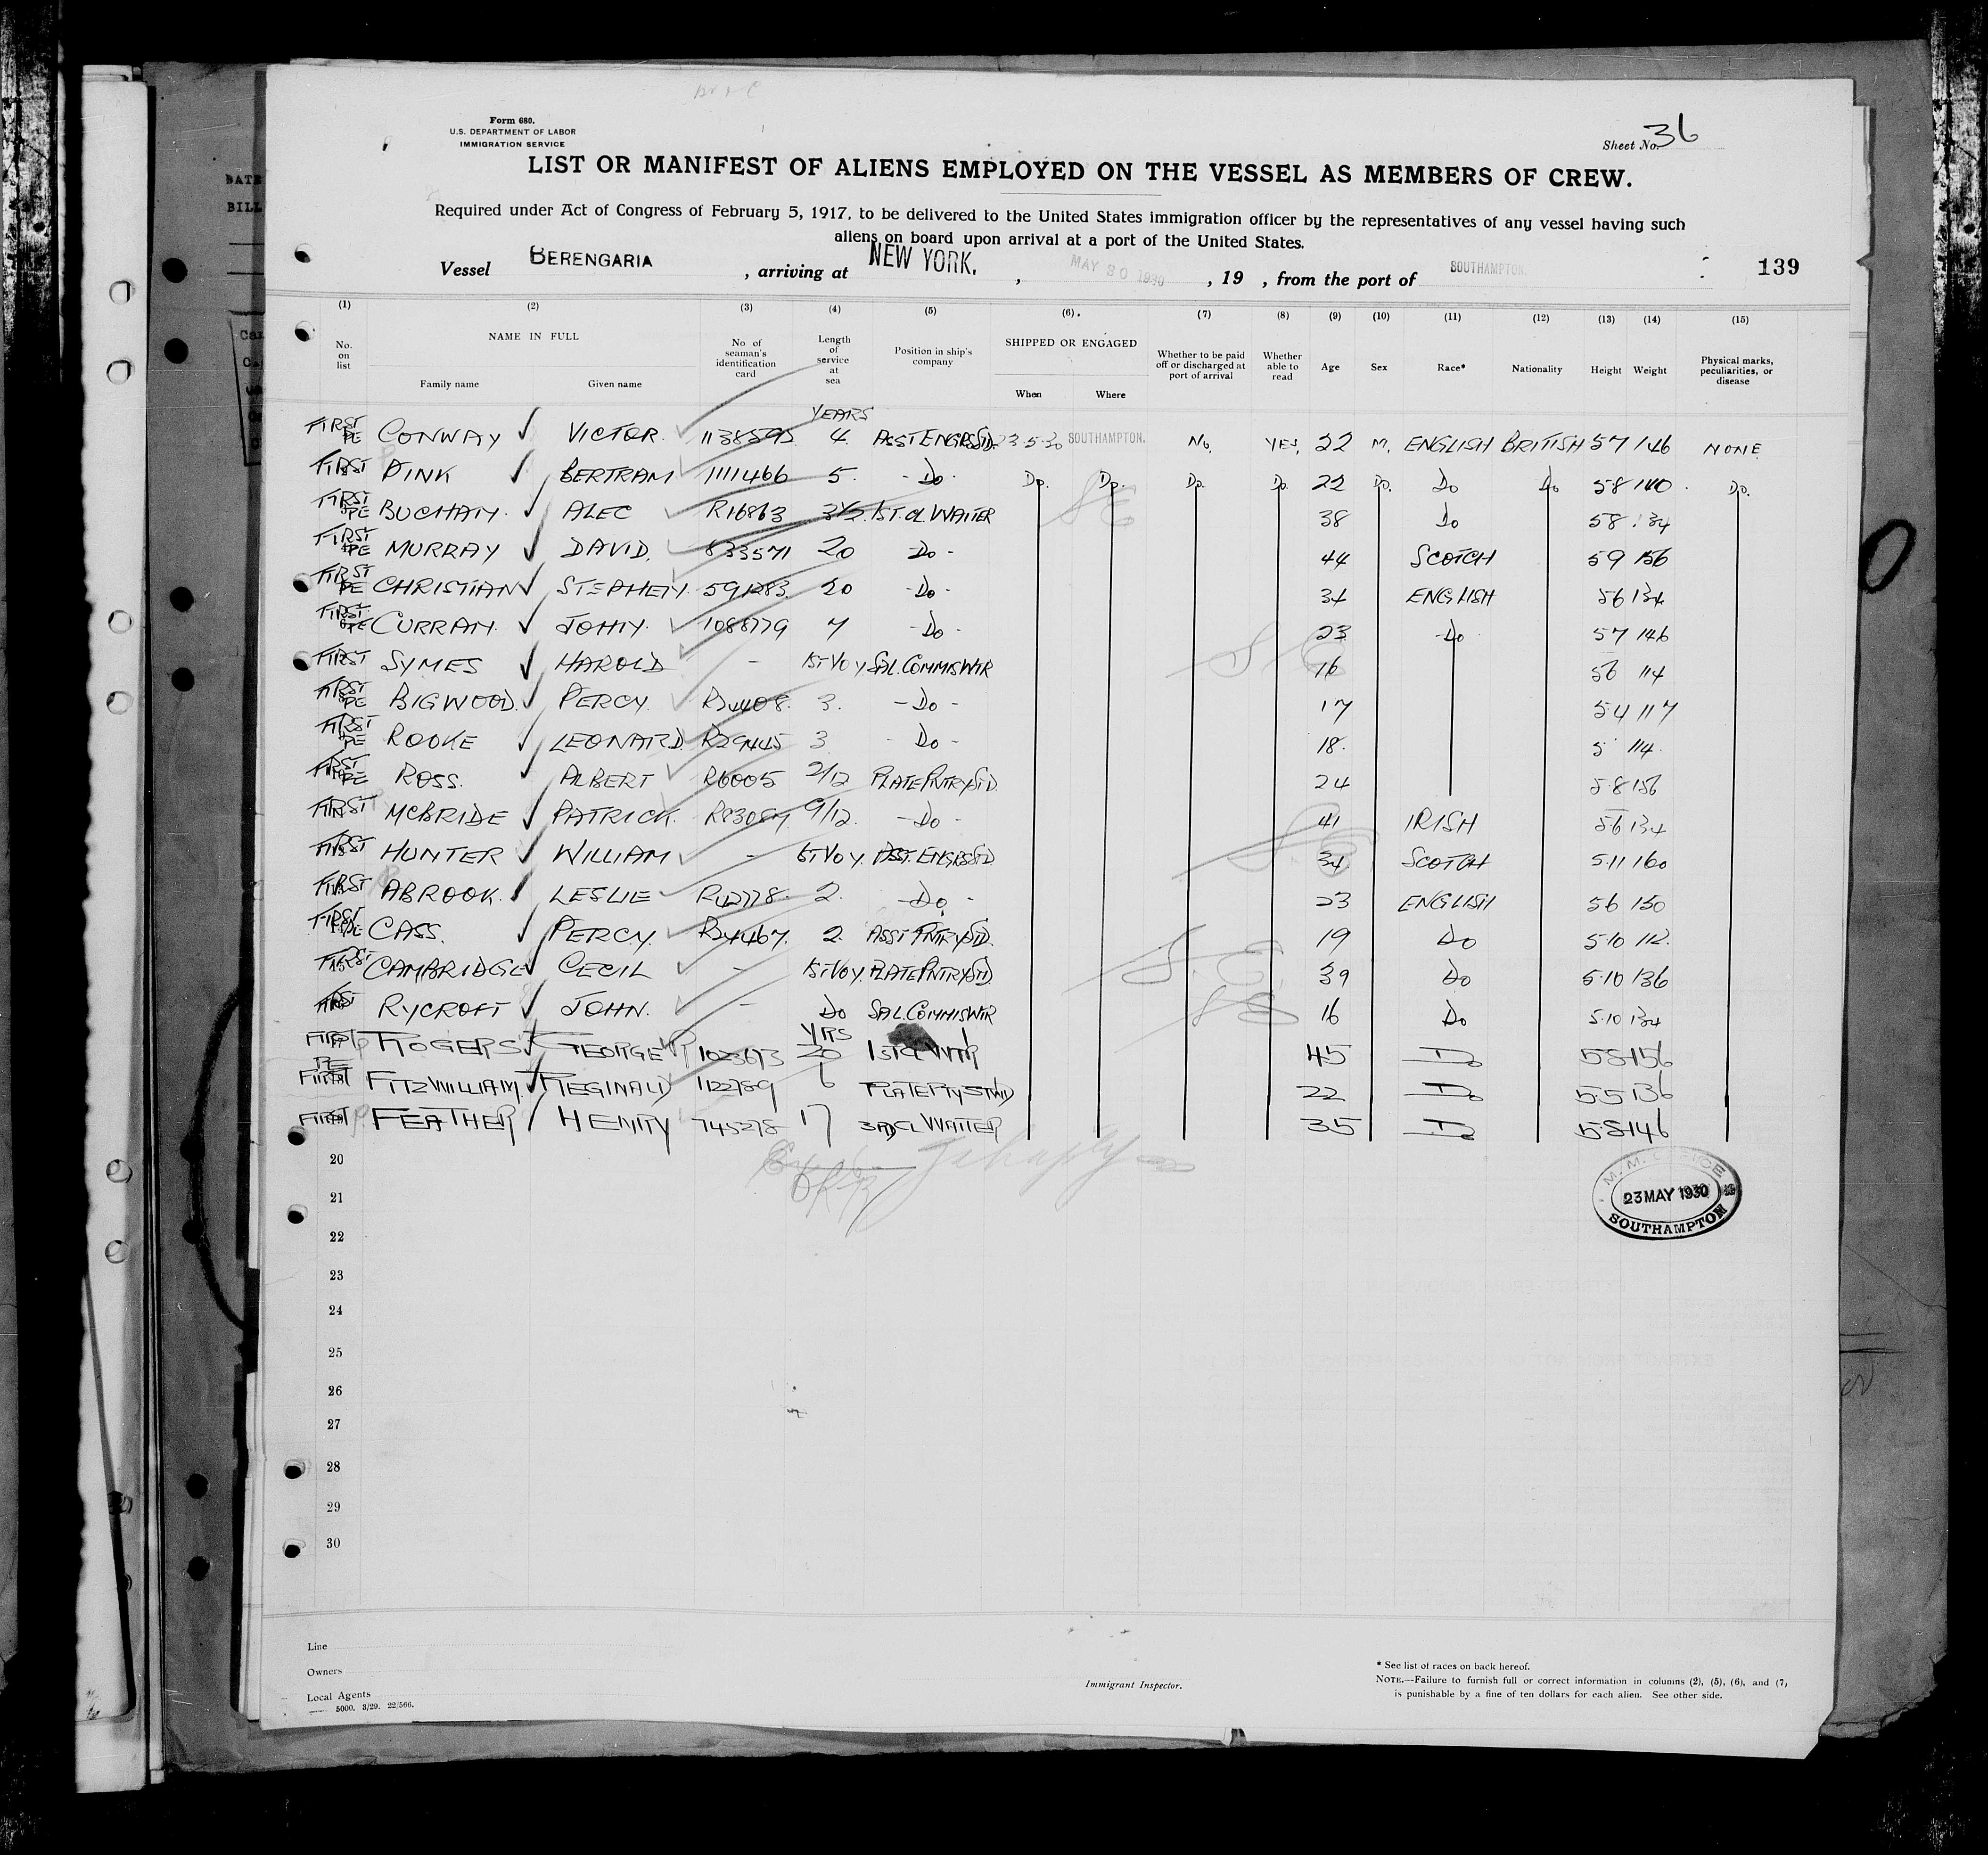 Form 680.
U.S. DEPARTMENT OF LABOR
IMMIGRATION SERVICE
Sheet No. 36
LIST OR MANIFEST OF ALIENS EMPLOYED ON THE VESSEL AS MEMBERS OF CREW.
Required under Act of Congress of February 5, 1917, to be delivered to the United States immigration officer by the representatives of any vessel having such
aliens on board upon arrival at a port of the United States.
Vessel BERENGARIA , arriving at NEW YORK. , MAY 30 1930 , 19 , from the port of SOUTHAMPTON. 139
(1) (2) (3) (4) (5) (6). (7) (8) (9) (10) (11) (12) (13) (14) (15)
No. on list NAME IN FULL Family name Given name No of seaman's identification card Length of service at sea Position in ship's company SHIPPED OR ENGAGED When Where Whether to be paid off or discharged at port of arrival Whether able to read Age Sex Race* Nationality Height Weight Physical marks, peculiarities, or disease
YEARS
FIRST CONWAY VICTOR. 1138595 4. ASST ENGRS STD. 23-5-30 SOUTHAMPTON. No. YES. 22 M. ENGLISH BRITISH 57 146 NONE
FIRST PINK BERTRAM 1111466 5. -Do- Do. Do. Do. Do. 22 Do. Do Do 58 140 Do.
FIRST BUCHAN. ALEC R16863 3½ 1ST. CL. WAITER 38 Do 58 134
FIRST MURRAY DAVID. 833571 20 -Do- 44 SCOTCH 59 156
FIRST CHRISTIAN STEPHEN. 591283. 20 -Do- 34 ENGLISH 56 134
FIRST CURRAN. JOHN. 1088779 7 -Do- 23 -Do 57 146
FIRST SYMES HAROLD - 1ST VOY SAL. COMMIS WTR 16 56 114
FIRST BIGWOOD. PERCY. 3. -Do- 17 5.4 117
FIRST ROOKE LEONARD. R29445 3 -Do- 18. 5 114.
FIRST ROSS. ALBERT R6005 2/12 PLATE PNTRY STD. 24 5.8 156
FIRST McBRIDE PATRICK. 9/12. -Do- 41 IRISH 56 134
FIRST HUNTER WILLIAM - 1ST VOY. ASST. ENGRS STD 34 SCOTCH 5.11 160
FIRST ABROOK. LESLIE 2. -Do- 23 ENGLISH 56 150
FIRST CASS. PERCY. 2. ASST PNTRY STD. 19 Do 5.10 112.
FIRST CAMBRIDGE CECIL - 1ST VOY. PLATE PNTRY STD. 39 Do 5.10 136
FIRST RYCROFT JOHN. - Do SAL. COMMIS WTR 16 Do 5.10 134
YRS
FIRST ROGERS GEORGE W 1023673 20 1ST CL WTR 45 Do 5.8 156
FIRST FITZWILLIAM. REGINALD 1122789 6 PLATE PTY STWD 22 Do 5.5 136
FIRST FEATHER HENRY 745278 17 3RD CL WAITER 35 Do 5.8 146
20
21
22
23
24
25
26
27
28
29
30
M.M. OFFICE
23 MAY 1930
SOUTHAMPTON
Line
Owners
Local Agents
5000. 3/29. 22/566.
Immigrant Inspector.
* See list of races on back hereof.
NOTE.—Failure to furnish full or correct information in columns (2), (5), (6), and (7,
is punishable by a fine of ten dollars for each alien. See other side.